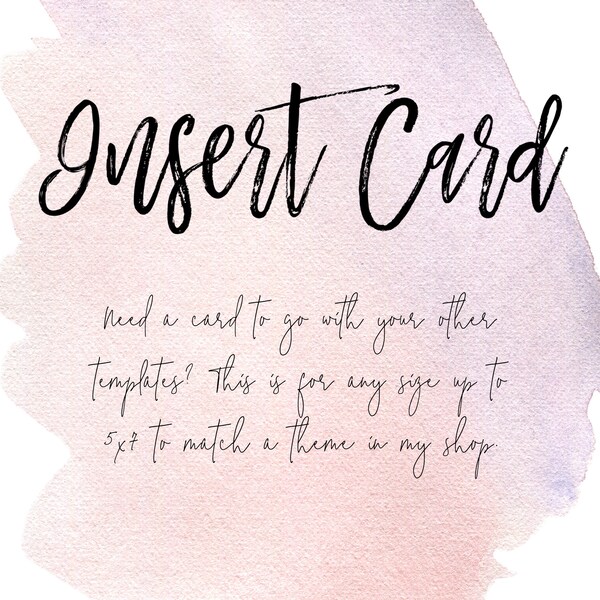 Insert Card
Need a card to go with your other
templates? This is for any size up to
5x7 to match a theme in my shop.